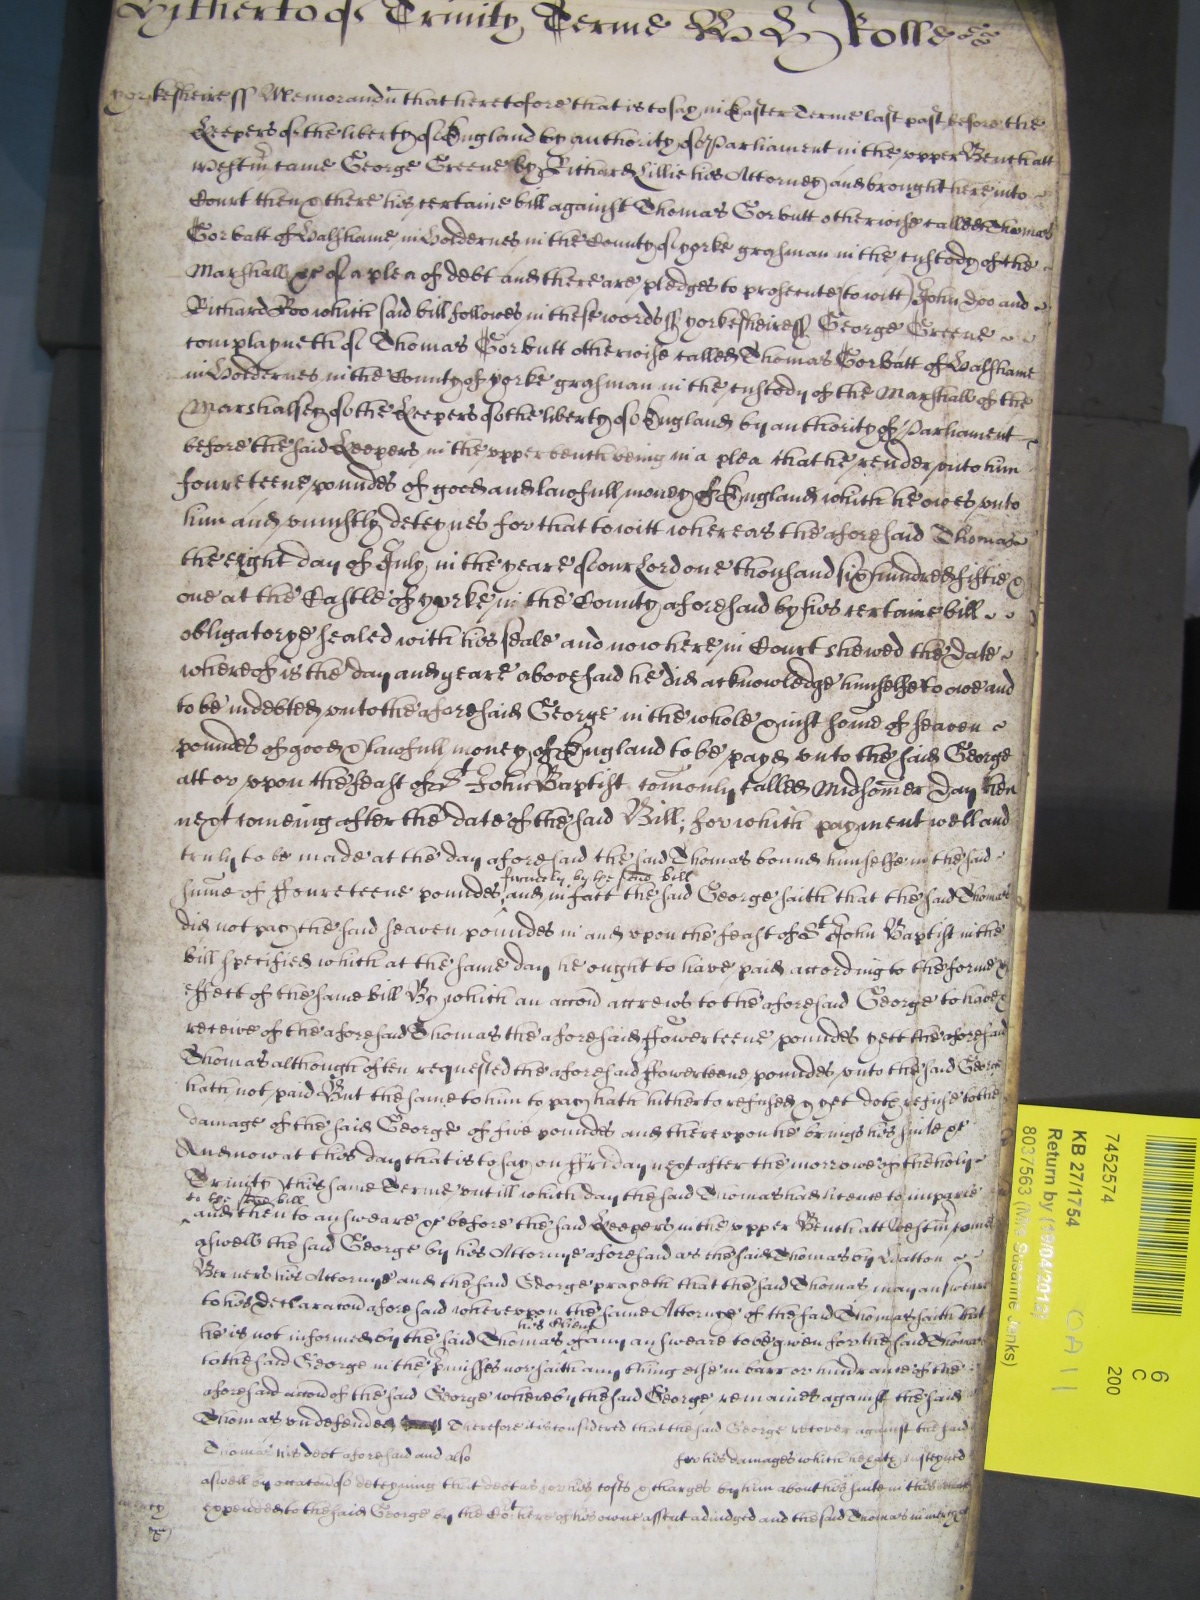 Hitherto of Trinity Terme By Rolle
yorkesheire ss Memorandu that heretofore that is to say in Easter Terme last past before the
Keepers of the liberty of England by authority of Parliament in the upper Bench att
Westm came George Greene by Richard Lillie his Attorney and brought here into
Court then & there his certaine bill against Thomas Gorbutt otherwise called Thomas
Gorbatt of Halshame in Holdernes in the County of yorke grasman in the custody of the
Marshall &c of a plea of debt and there are pledges to prosecute (to witt) John Doo and
Richard Roo which said bill followes in these words ss yorkesheire ss George Greene
complayneth of Thomas Gorbutt otherwise called Thomas Gorbatt of Halshame
in Holdernes in the County of yorke grasman in the custody of the Marshall of the
Marshalsey of the Keepers of the liberty of England by authority of Parliament
before the said Keepers in the upper bench being in a plea that he render unto him
foureteene poundes of good and lawfull money of England which he owes unto
him and uniustly deteynes for that to witt whereas the aforesaid Thomas
the eight day of July in the yeare of our Lord one thousand six hundred fiftie &
one at the Castle of yorke in the County aforesaid by his certaine bill
obligatorye sealed with his seale and now here in Court shewed the date
whereof is the day and yeare abovesaid he did acknowledge himselfe to owe and
to be indebted unto the aforesaid George in the whole & iust some of seaven
poundes of good & lawfull money of England to be payd unto the said George
att or upon the feast of St John Baptist comonly called Midsomer day then
next comeing after the date of the said Bill; for which payment well and
truly to be made at the day aforesaid the said Thomas bound himselfe in the said
firmely by the said bill
sume of ffoureteene poundes and in fact the said George saith that the said Thomas
did not pay the said seaven poundes in and upon the feast of St John Baptist in the
bill specified which at the same day he ought to have paid according to the forme &
effect of the same bill By which an accon accrews to the aforesaid George to have &
receive of the aforesaid Thomas the aforesaid ffowerteene poundes yett the aforesaid
Thomas although often requested the aforesaid ffowerteene poundes unto the said George
hath not paid But the same to him to pay hath hitherto refused & yet doth refuse to the
damage of the said George of five poundes and thereupon he brings his suite &c
And now at this day that is to say on ffriday next after the morrowe of the holy
Trinity this same Terme untill which day the said Thomas had licence to imparle
to the said bill
and then to answeare &c before the said Keepers in the upper Bench att Westm come
aswell the said George by his Attorney aforesaid as the said Thomas by Hatton
Berners his Attorney and the said George prayeth that the said Thomas may answeare
to his declaracon aforesaid whereupon the same Attorney of the said Thomas saith that
his client
he is not informed by the said Thomas of any answeare to be given for the said Thomas
to the said George in the pmisses nor saith any thing else in barr or hindrance of the
aforesaid accon of the said George whereby the said George remaines against the said
Thomas undefended Therefore it is considered that the said George recover against the said
Thomas his debt aforesaid and also for his damages which he hath susteyned
aswell by occacon of deteyning that debt as for his costs & charges by him about his suite in this behalf
expended to the said George by the Court here of his owne assent adiudged and the said Thomas in mercy &c
mercy
7452574
KB 27/1754
Return by (19/04/2013)
8037563 (Mrs Susanne Jenks)
6
C
200